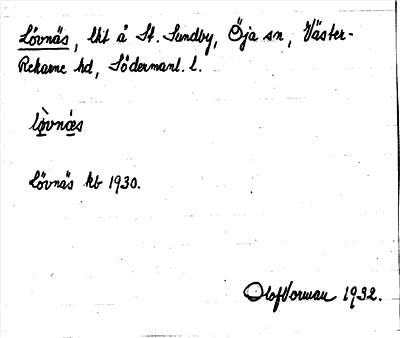 Lövnäs, lht å St. Sundby, Öja sn, Väster-
Rekarne hd, Södermanl. l.
lòvnäs
Lövnäs kb 1930.
Olof Vorman 1932.